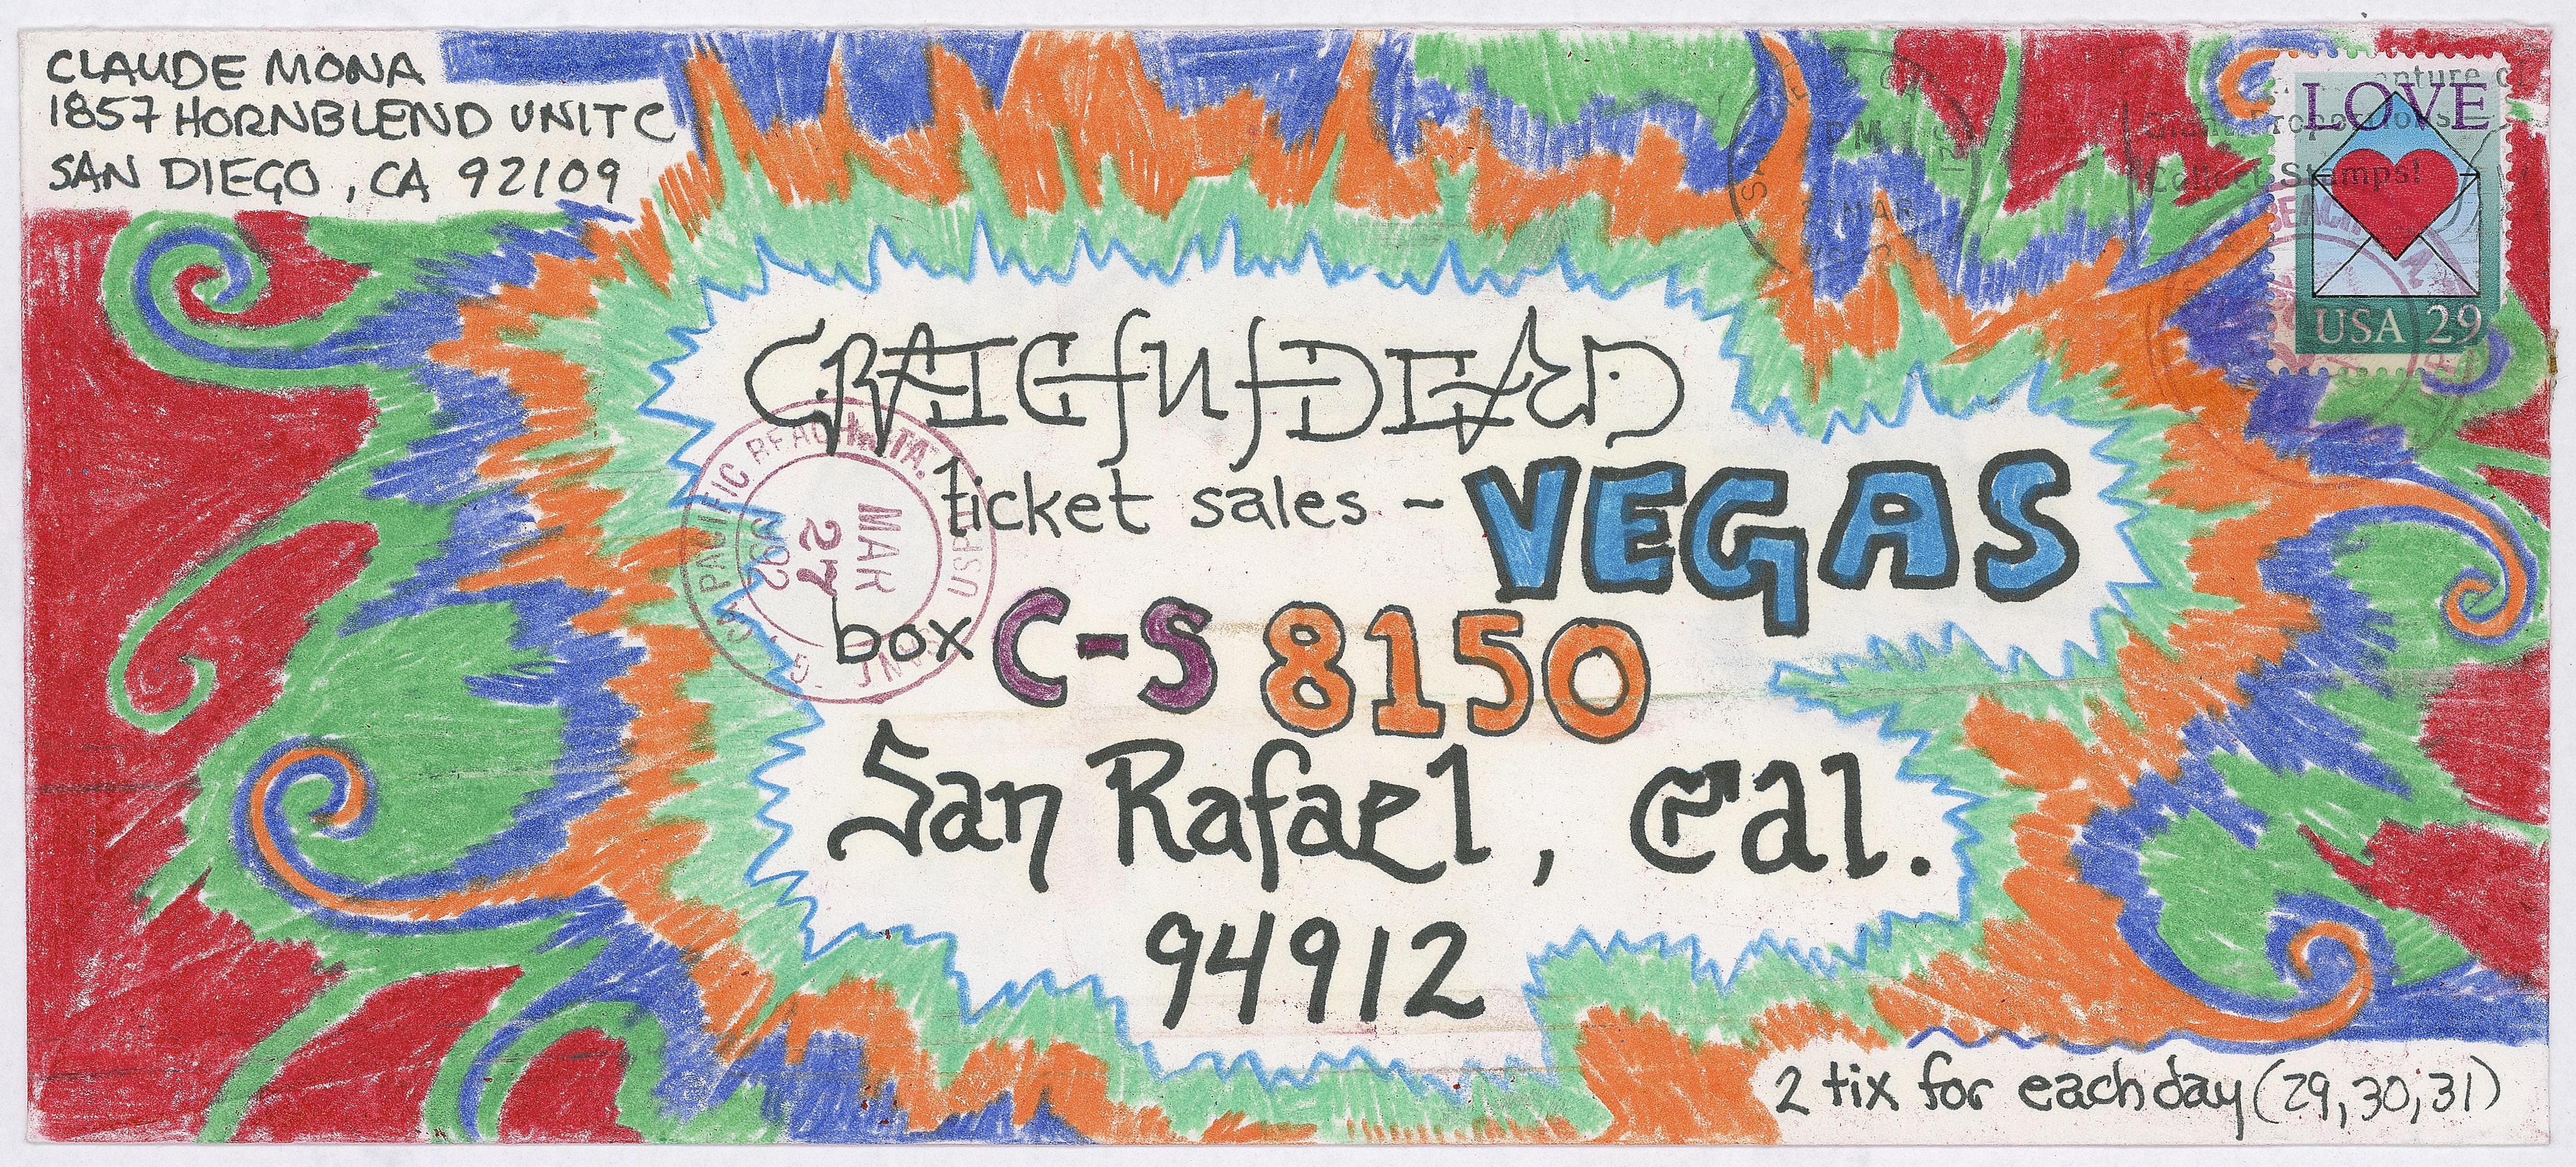 CLAUDE MONA
1857 HORNBLEND UNIT C
SAN DIEGO, CA 92109
LOVE
Giant Proportions
Collect Stamps!
USA 29
PM
27 MAR
GRATEFUL DEAD
ticket sales - VEGAS
PACIFIC BEACH STA.
MAR
27
box C-S 8150
San Rafael, Cal.
94912
2 tix for each day (29,30,31)